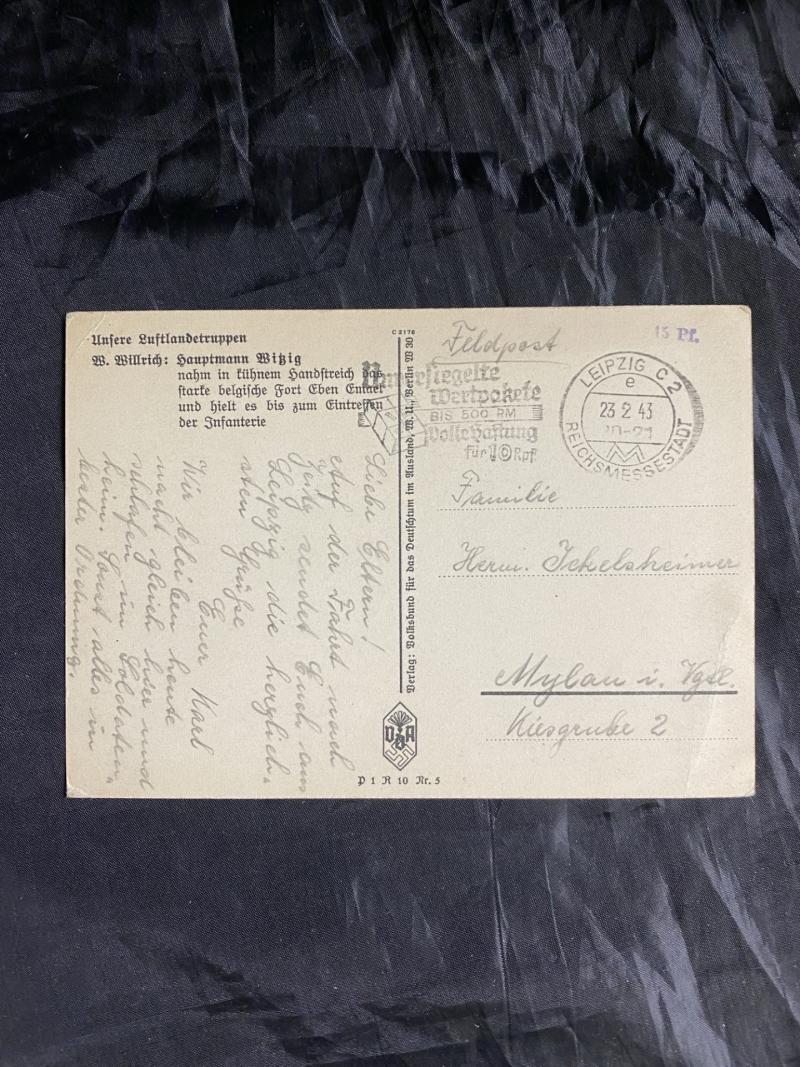 Unsere Luftlandetruppen
W. Willrich: Hauptmann Witzig
nahm in kühnem Handstreich das
starke belgische Fort Eben Emael
und hielt es bis zum Eintreffen
der Infanterie
Liebe Eltern!
Auf der Fahrt nach
sendet Euch aus
Leipzig die herzlich-
sten Grüße
Euer Karl
Wir bleiben heute
nacht gleich hier und
schlafen im Soldaten-
heim. Sonst alles in
bester Ordnung.
C 2176
Verlag: Volksbund für das Deutschtum im Ausland, W. U., Berlin W 30
VDA
P 1 R 10 Nr. 5
Feldpost
15 Pf.
Unversiegelte
Wertpakete
BIS 500 RM
Volle Haftung
für 10 Rpf
LEIPZIG C 2
e
23 2 43
REICHSMESSESTADT
Familie
Herm. Ickelsheimer
Mylau i. Vgtl.
Kiesgrube 2